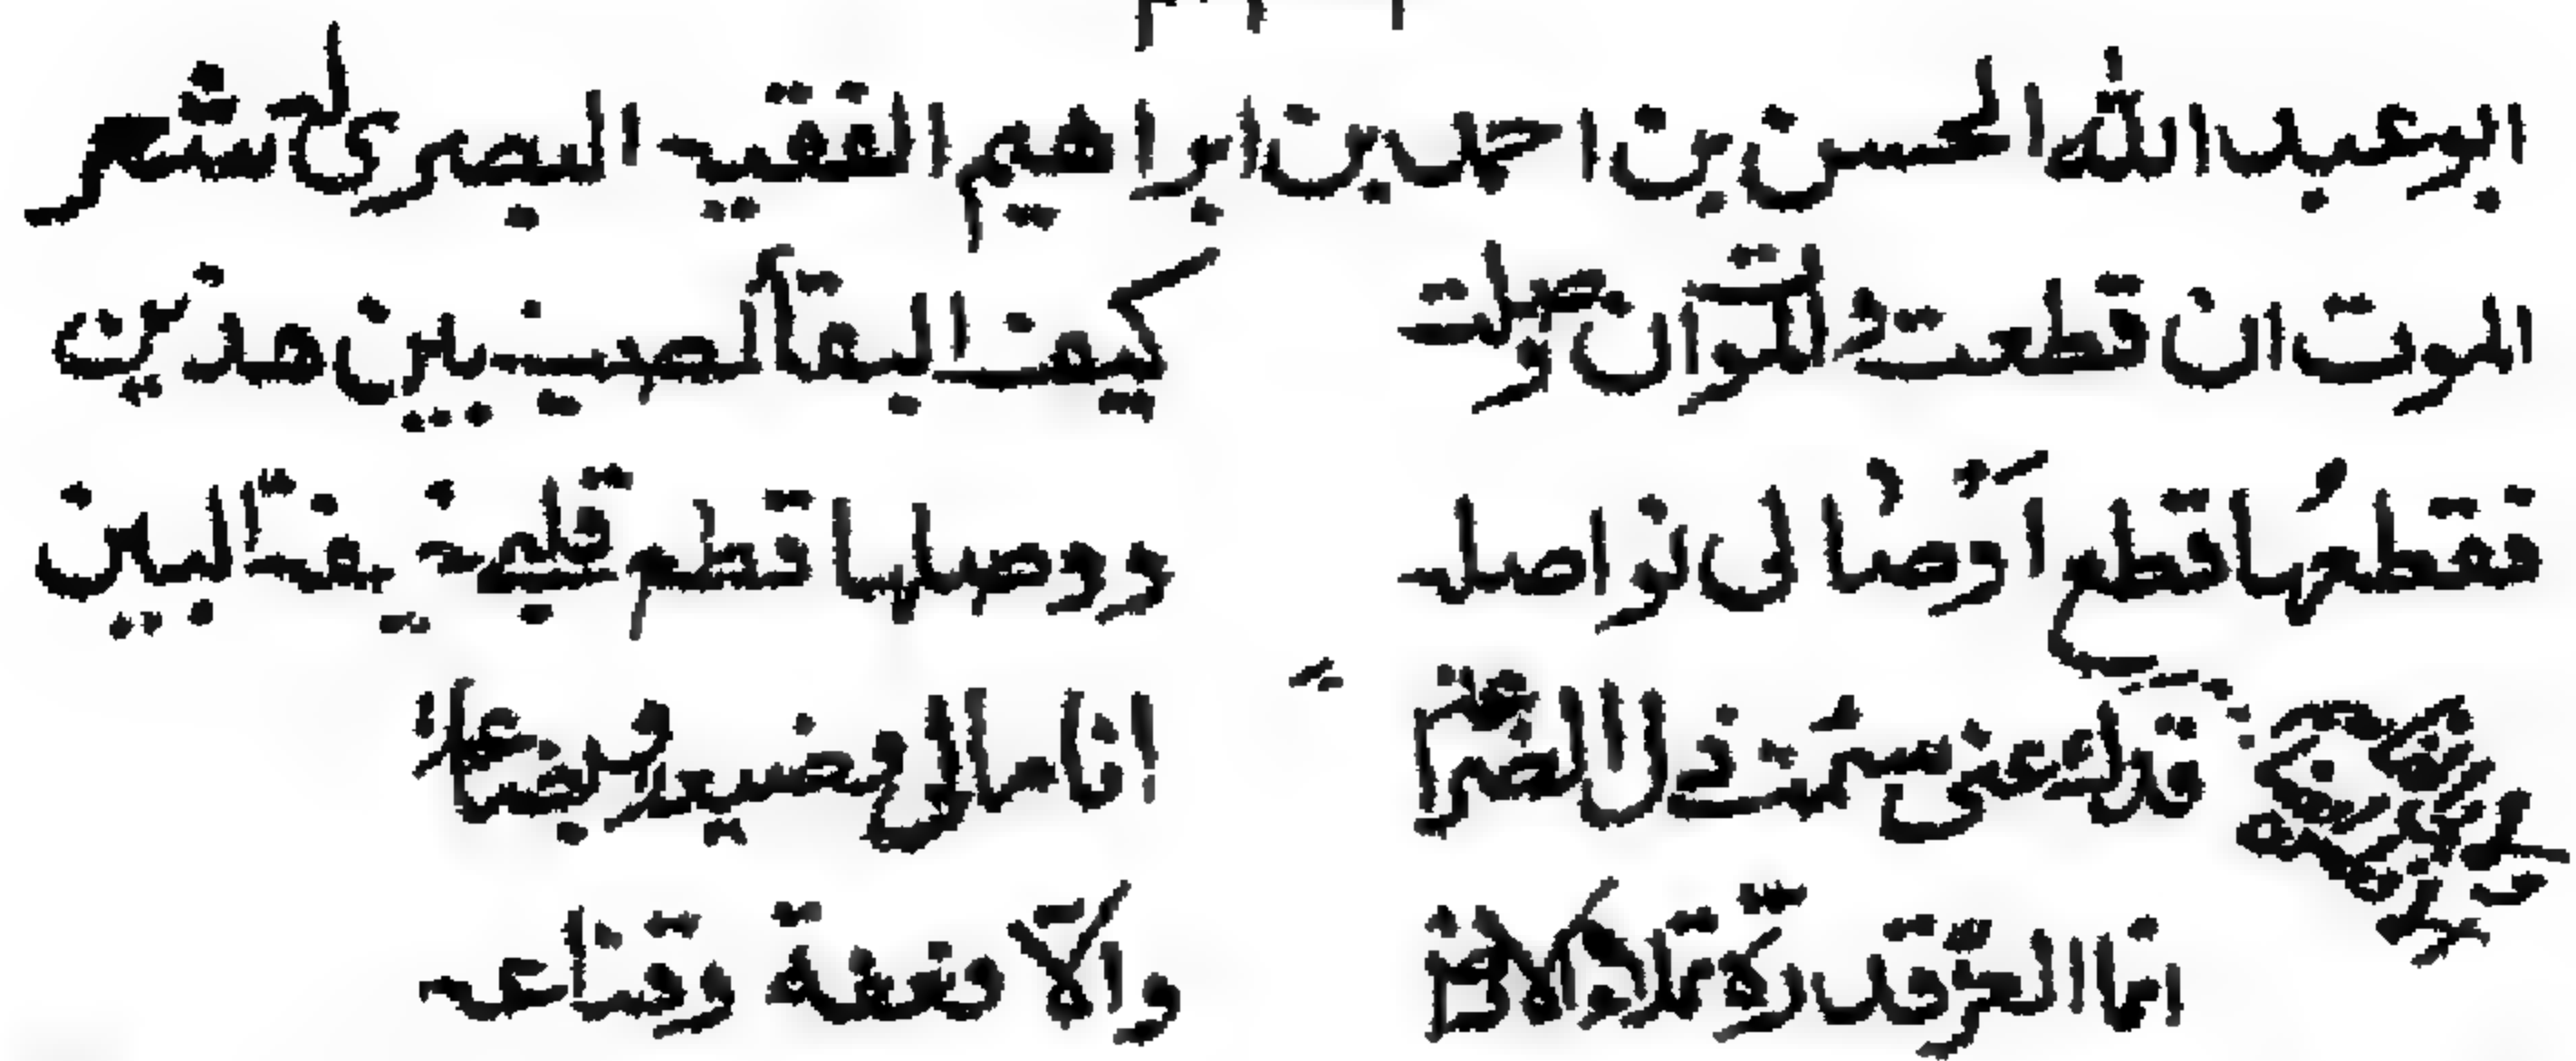 ابو عبد الله الحسن بن احمد بن ابراهيم الفقيه البصرى شعر
الموت ان قطعت والموت ان وصلت كيف البقا لصب بين هذين
فقطعها قطع اوصالى تواصله ووصلها قطع قلبى خيفة البين
قد لعنى سمت ذل الضراعه انا مالى وضيعه وبضاعه
انما العز قدرة تملا الارض والا فعفة وقناعه